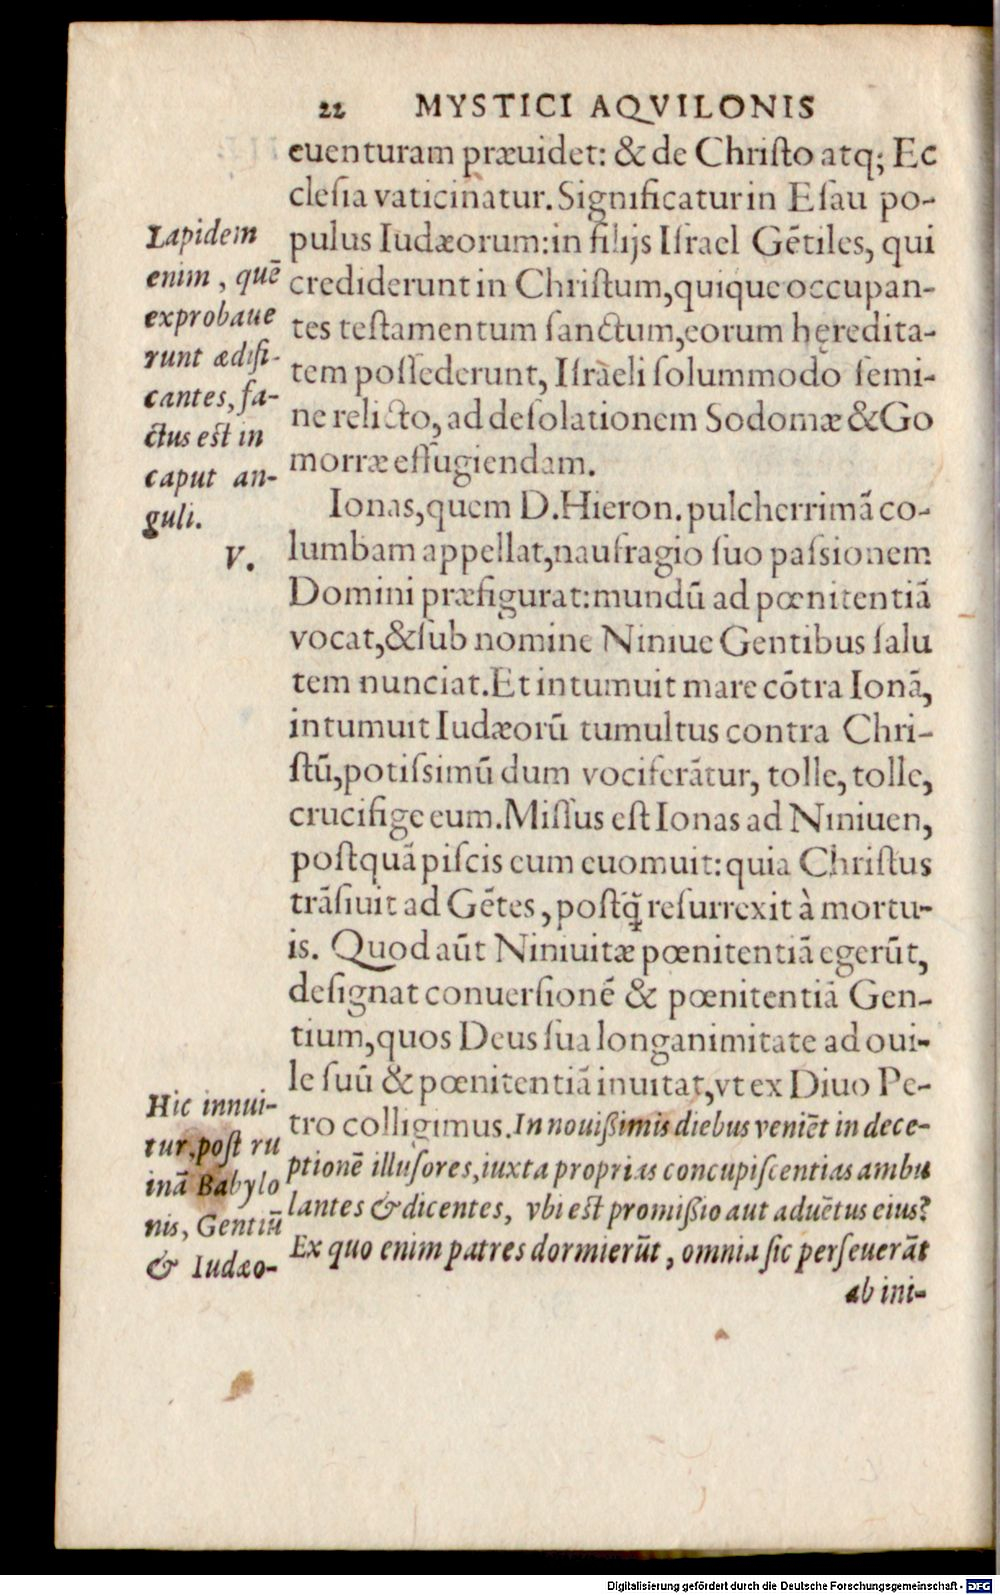 22 MYSTICI AQVILONIS
euenturam præuidet: & de Christo atq; Ec
clesia vaticinatur. Significatur in Esau po-
pulus Iudæorum: in filijs Israel Gẽtiles, qui
crediderunt in Christum, quique occupan-
tes testamentum sanctum, eorum hęredita-
tem possederunt, Israeli solummodo semi-
ne relicto, ad desolationem Sodomæ & Go
morræ effugiendam.
Lapidem
enim, quẽ
exprobaue
runt ædifi-
cantes, fa-
ctus est in
caput an-
guli.
V.
Ionas, quem D. Hieron. pulcherrimã co-
lumbam appellat, naufragio suo passionem
Domini præfigurat: mundũ ad pœnitentiã
vocat, & sub nomine Niniue Gentibus salu
tem nunciat. Et intumuit mare cõtra Ionã,
intumuit Iudæorũ tumultus contra Chri-
stũ, potissimũ dum vociferãtur, tolle, tolle,
crucifige eum. Missus est Ionas ad Niniuen,
postquã piscis eum euomuit: quia Christus
trãsiuit ad Gẽtes, postq̃ resurrexit à mortu-
is. Quod aũt Niniuitæ pœnitentiã egerũt,
designat conuersionẽ & pœnitentiã Gen-
tium, quos Deus sua longanimitate ad oui-
le suũ & pœnitentiã inuitat, vt ex Diuo Pe-
tro colligimus. In nouißimis diebus veniẽt in dece-
ptionẽ illusores, iuxta proprias concupiscentias ambu
lantes & dicentes, vbi est promißio aut aduẽtus eius?
Ex quo enim patres dormierũt, omnia sic perseuerãt
ab ini-
Hic innui-
tur, post ru
inã Babylo
nis, Gentiũ
& Iudæo-
Digitalisierung gefördert durch die Deutsche Forschungsgemeinschaft - DFG